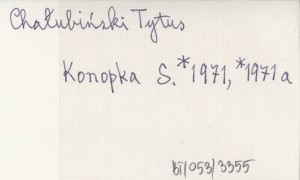 Chałubiński Tytus
Konopka S. *1971, *1971a
BT/053/3355